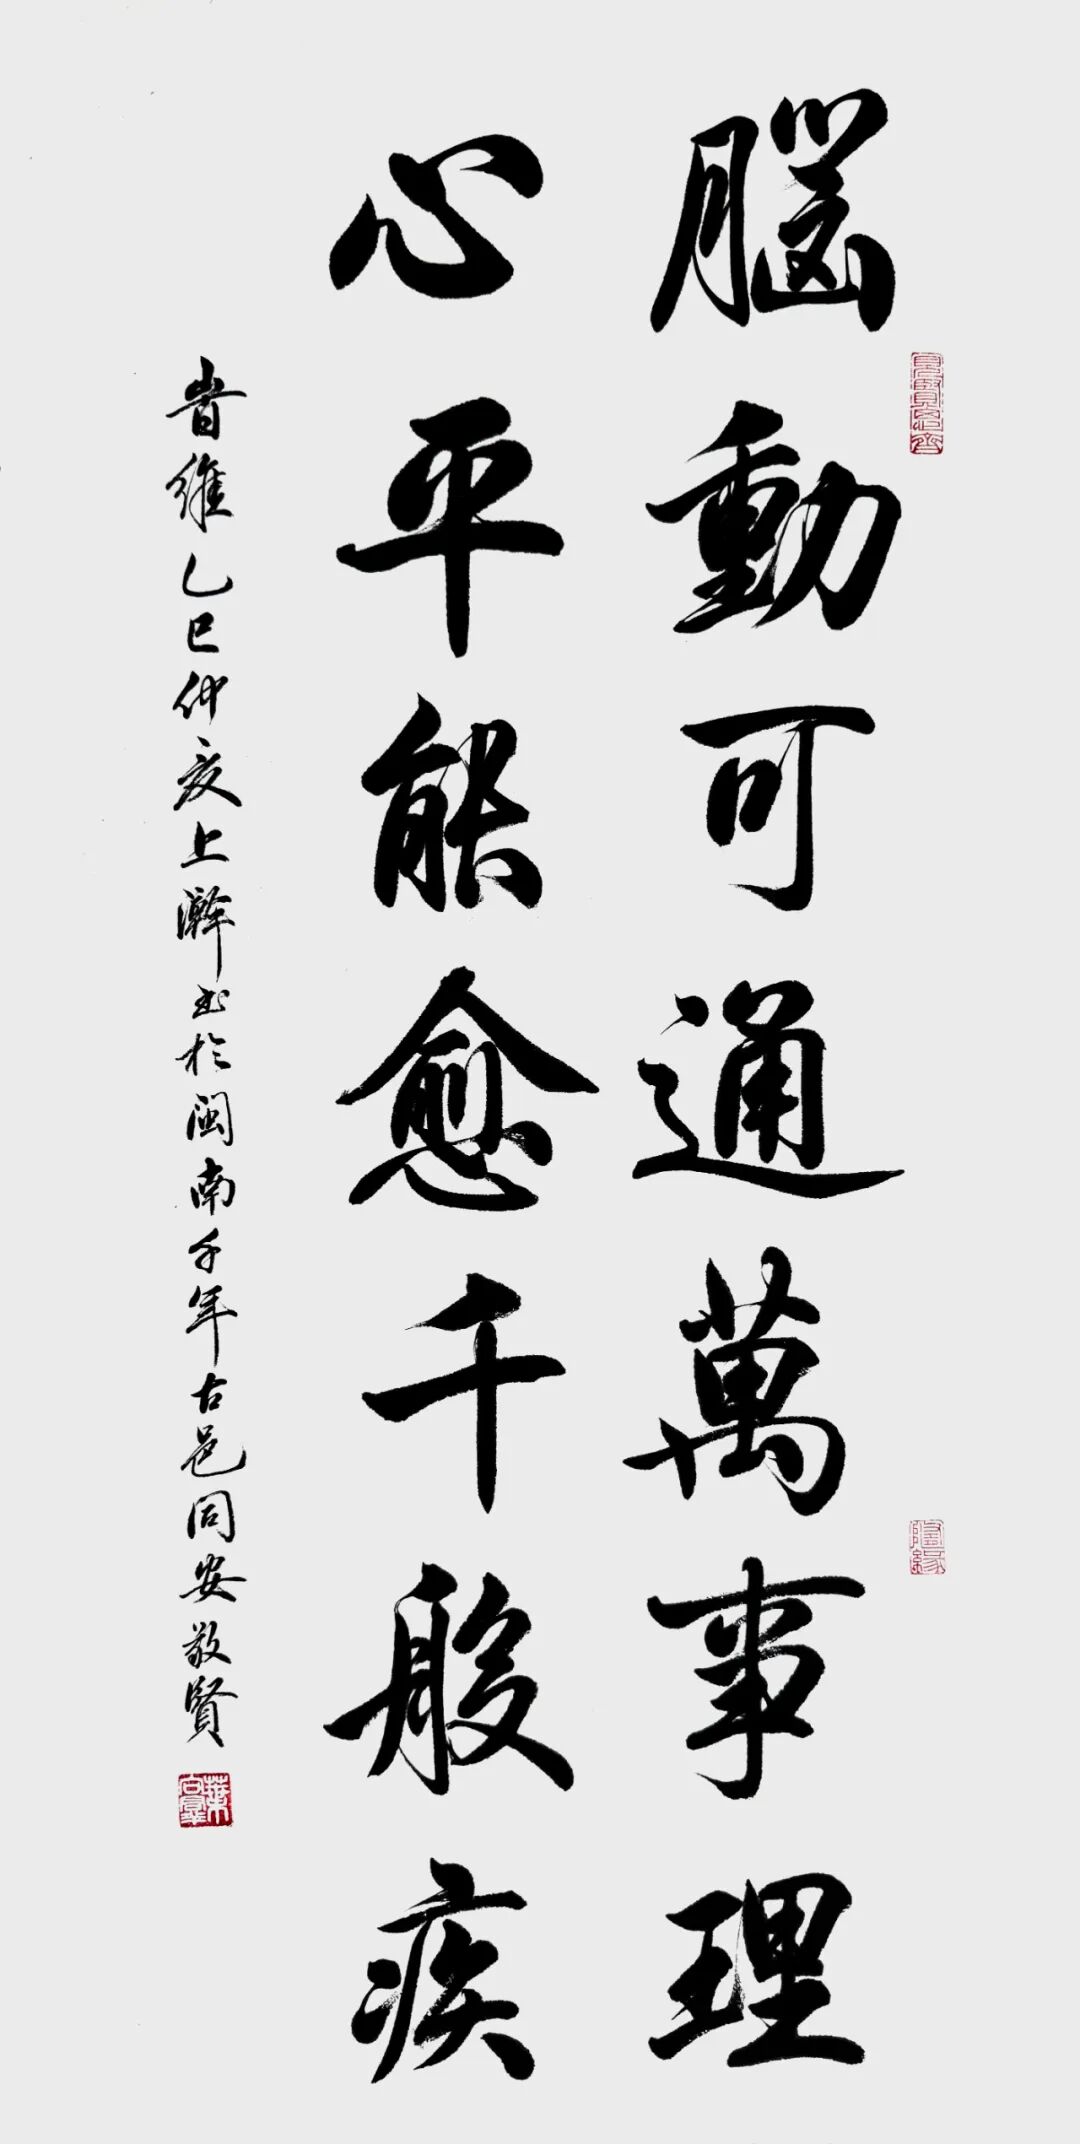 見賢思齊
腦動可通萬事理
隨緣
心平能愈千般疾
旹維乙巳仲夏上澣书於閩南千年古邑同安敬賢